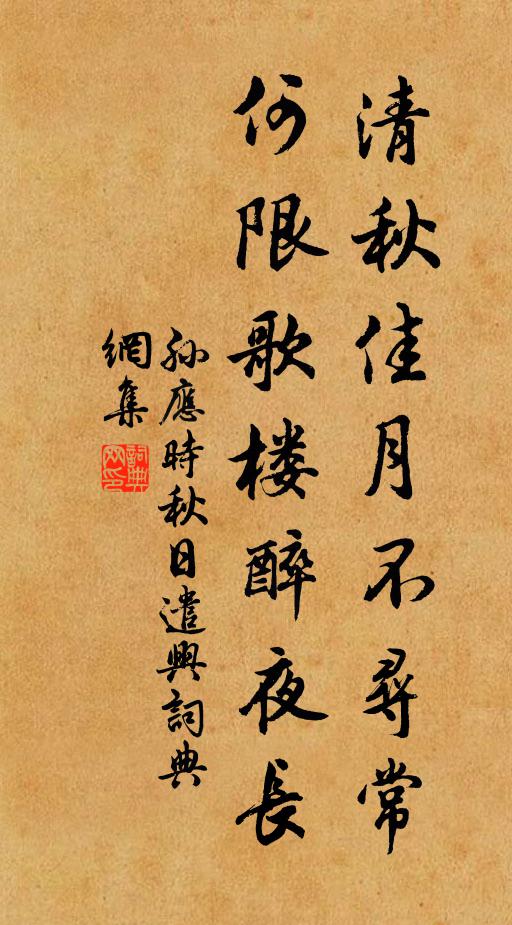 清秋佳月不尋常
何限歌楼醉夜長
孫應時秋日遣興詞典
網集
詞典網印